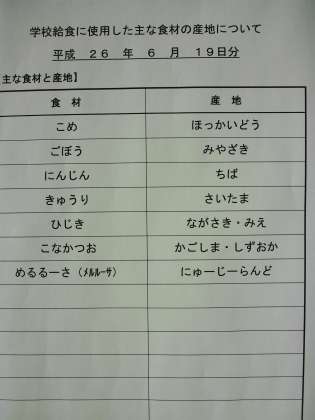 学校給食に使用した主な食材の産地について
平成 26 年 6 月 19日分
主な食材と産地】
食 材 産 地
こめ ほっかいどう
ごぼう みやざき
にんじん ちば
きゅうり さいたま
ひじき ながさき・みえ
こなかつお かごしま・しずおか
めるるーさ(ﾒﾙﾙｰｻ) にゅーじーらんど